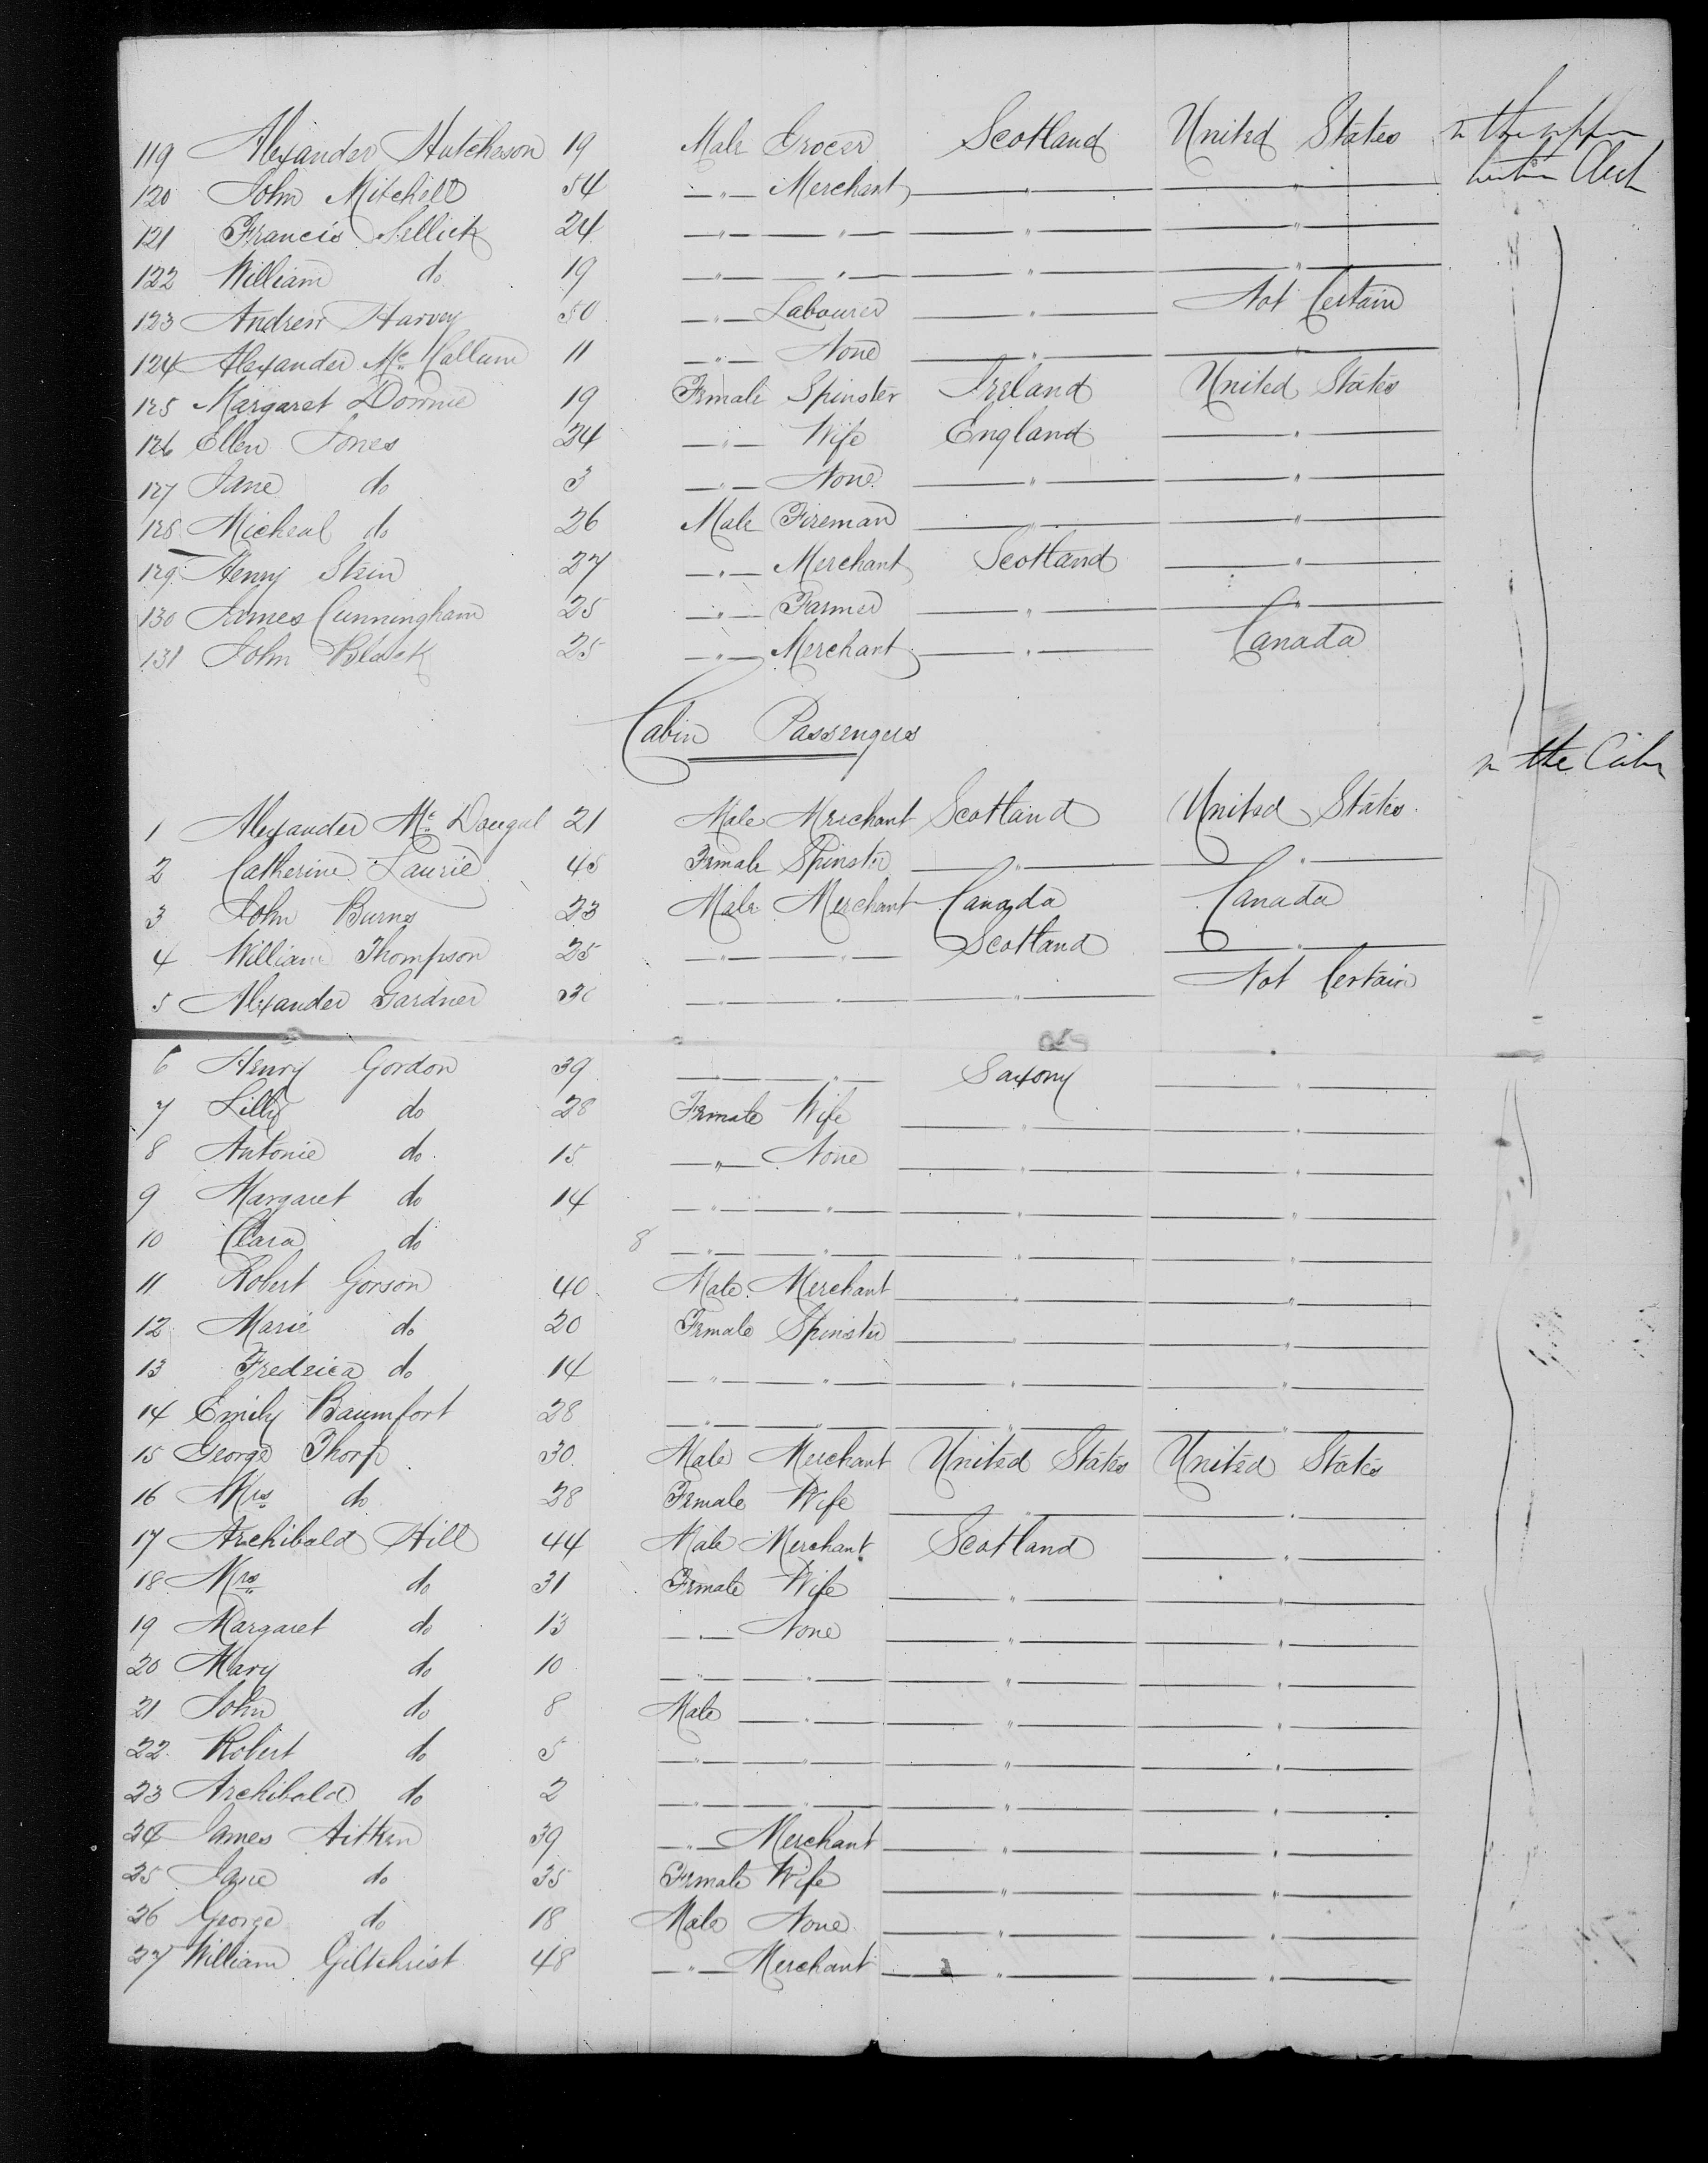 119 Alexander Hutcheson 19 Male Grocer Scotland United States in the upper
120 John Mitchell 54 —"— Merchant —"— —"— between deck
121 Francis Sellick 24 —"— —"— —"— —"—
122 William do 19 —"— —"— —"— —"—
123 Andrew Harvey 50 —"— Labourer —"— Not Certain
124 Alexander Mc Callum 11 —"— None —"— —"—
125 Margaret Downie 19 Female Spinster Ireland United States
126 Ellen Jones 24 —"— Wife England —"—
127 Jane do 3 —"— None —"— —"—
128 Micheal do 26 Male Fireman —"— —"—
129 Henry Stein 27 —"— Merchant Scotland —"—
130 James Cunningham 25 —"— Farmer —"— —"—
131 John Black 25 —"— Merchant —"— Canada
Cabin Passengers
in the Cabin
1 Alexander Mc Dougal 21 Male Merchant Scotland United States
2 Catherine Laurie 45 Female Spinster —"— —"—
3 John Burns 23 Male Merchant Canada Canada
4 William Thompson 25 —"— —"— Scotland —"—
5 Alexander Gardner 30 —"— —"— —"— Not Certain
6 Henry Gordon 39 —"— —"— Saxony —"—
7 Lilly do 28 Female Wife —"— —"—
8 Antonie do 15 —"— None —"— —"—
9 Margaret do 14 —"— —"— —"— —"—
10 Clara do 8 —"— —"— —"— —"—
11 Robert Gorson 40 Male Merchant —"— —"—
12 Marie do 20 Female Spinster —"— —"—
13 Fredrica do 14 —"— —"— —"— —"—
14 Emily Baumfort 28 —"— —"— —"— —"—
15 George Thorp 30 Male Merchant United States United States
16 Mrs do 28 Female Wife —"— —"—
17 Archibald Hill 44 Male Merchant Scotland —"—
18 Mrs do 31 Female Wife —"— —"—
19 Margaret do 13 —"— None —"— —"—
20 Mary do 10 —"— —"— —"— —"—
21 John do 8 Male —"— —"— —"—
22 Robert do 5 —"— —"— —"— —"—
23 Archibald do 2 —"— —"— —"— —"—
24 James Aitken 39 —"— Merchant —"— —"—
25 Jane do 35 Female Wife —"— —"—
26 George do 18 Male None —"— —"—
27 William Giltchrist 48 —"— Merchant —"— —"—